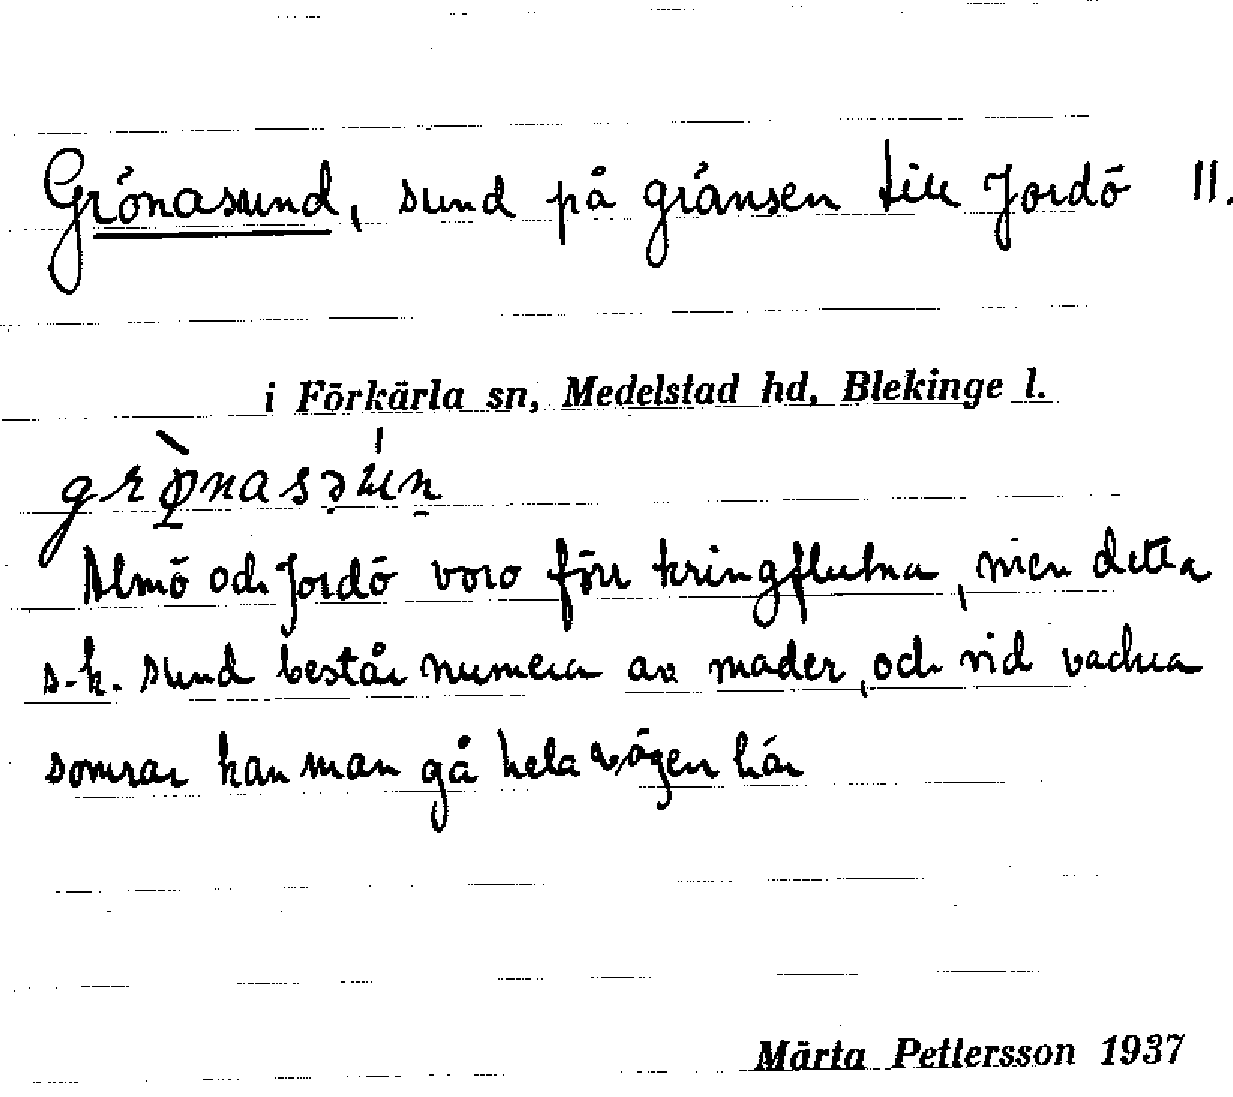 Grönasund, sund på gränsen till Jordö 11.
i Förkärla sn, Medelstad hd, Blekinge l.
Almö och Jordö voro förr kringflutna, men detta
s.k. sund består numera av mader, och vid vackra
somrar kan man gå hela vägen här
Märta Pettersson 1937